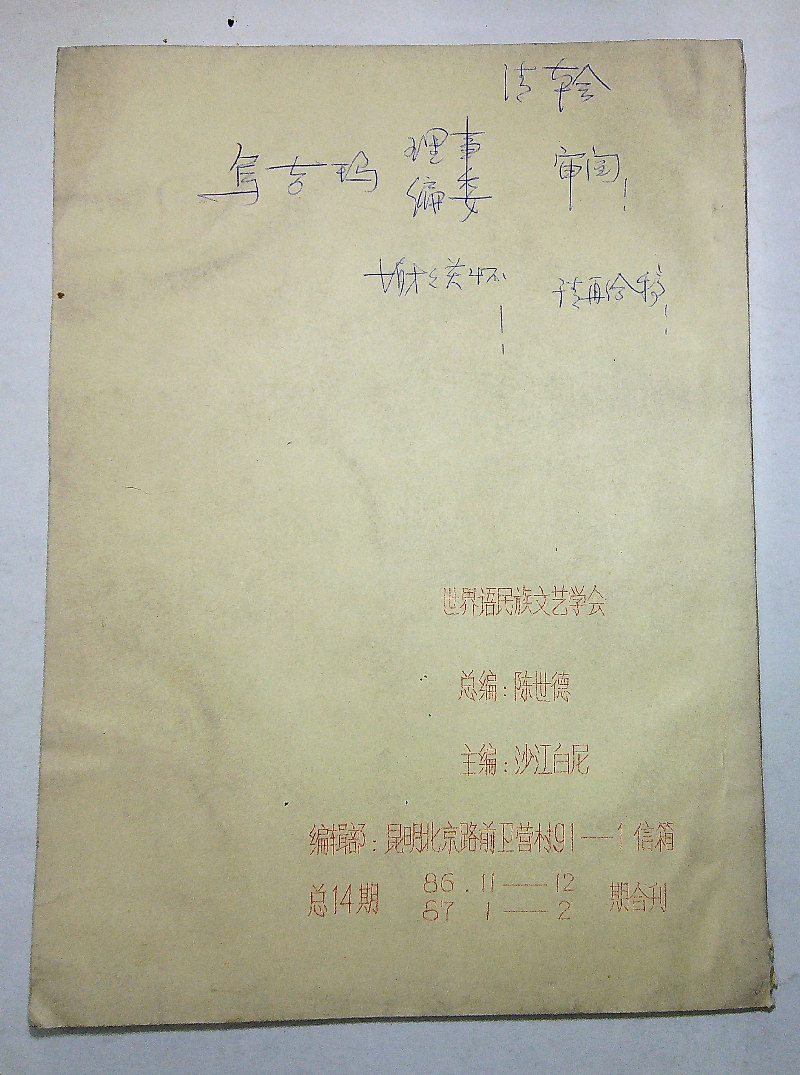 请
乌吉玛 理事 审阅!
编委
请再给稿!
世界语民族文艺学会
总编:陈世德
主编:沙江白尼
编辑部:昆明北京路前卫营村91——1信箱
总14期 86.11——12 期合刊
87 1——2